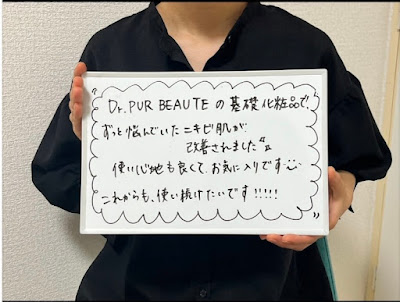 Dr. PUR BEAUTE の基礎化粧品で、
ずっと悩んでいたニキビ肌が
改善されました
使い心地も良くて、お気に入りです
これからも、使い続けたいです!!!!!